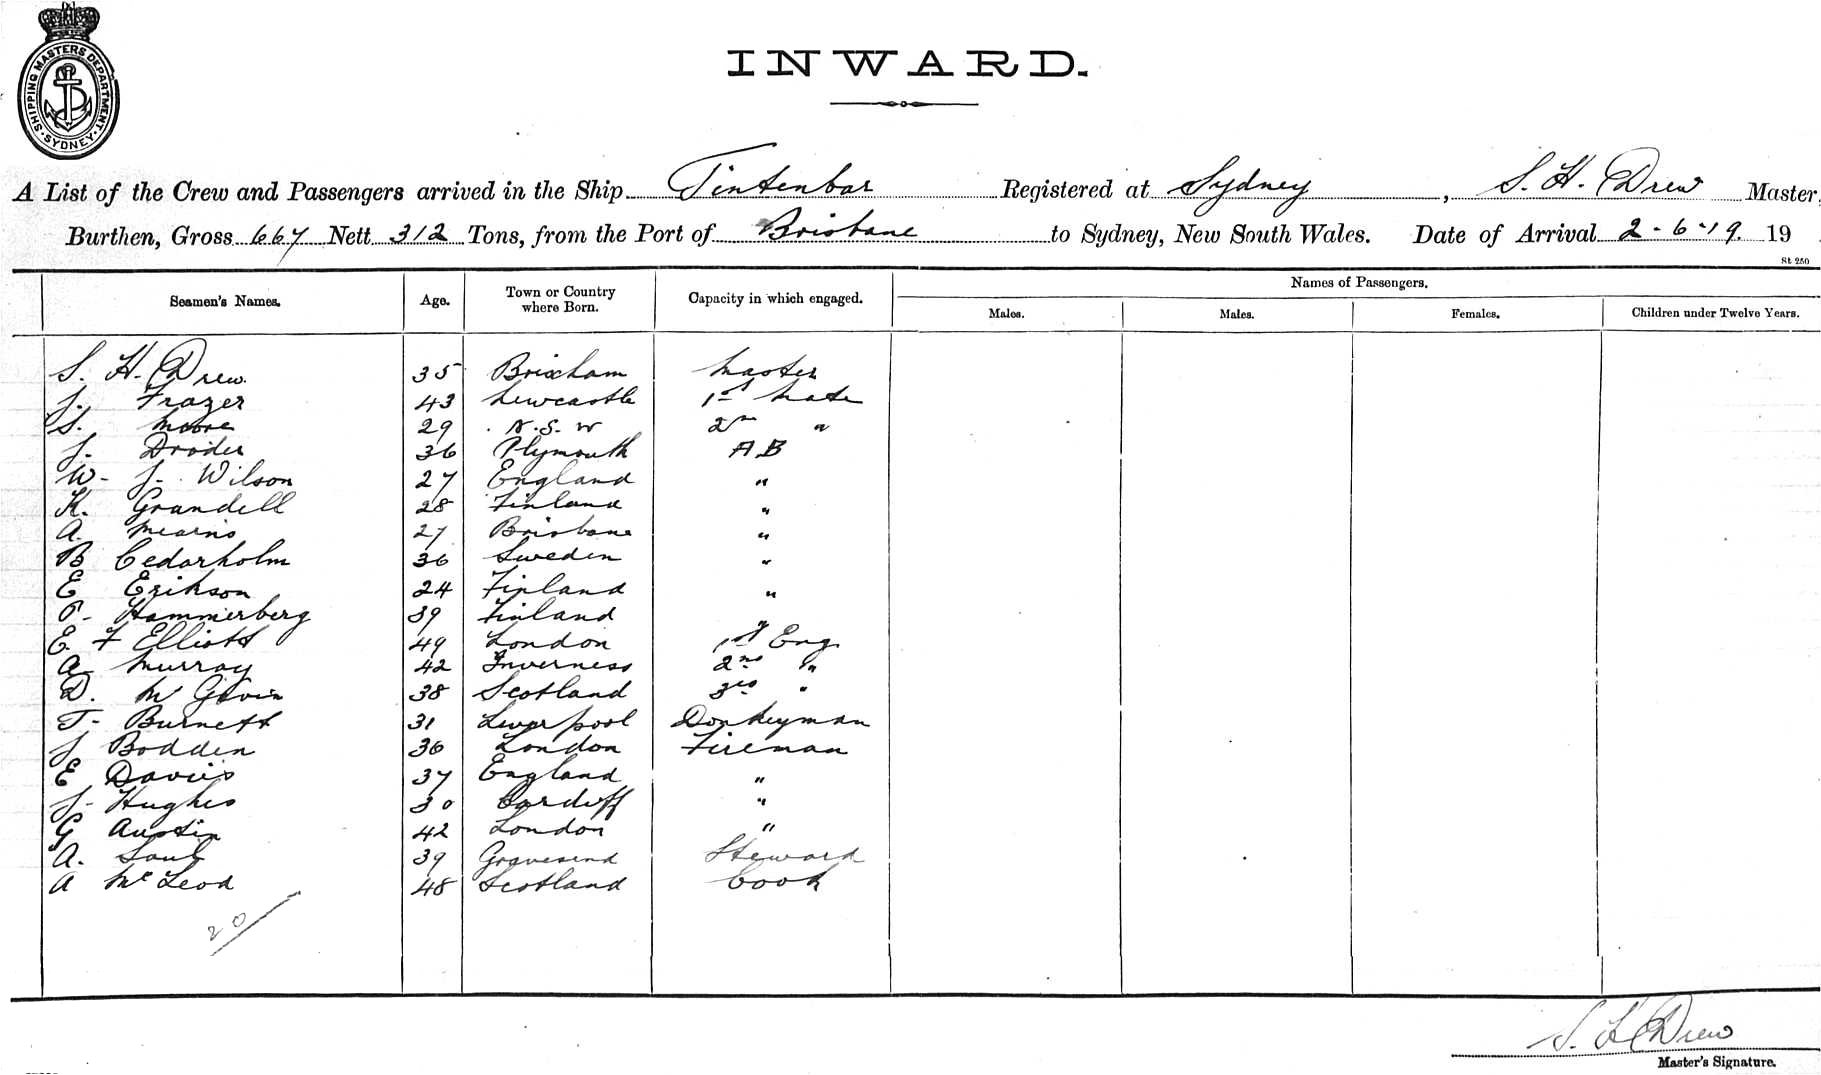 SHIPPING MASTERS DEPARTMENT. SYDNEY.
INWARD.
A List of the Crew and Passengers arrived in the Ship Tintenbar Registered at Sydney, S. H. Drew Master,
Burthen, Gross 667 Nett 312 Tons, from the Port of Brisbane to Sydney, New South Wales. Date of Arrival 2-6-19. 19
St 250
Seamen's Names. Age. Town or Country where Born. Capacity in which engaged. Names of Passengers.
Males. Males. Females. Children under Twelve Years.
S. H. Drew 35 Brixham Master
J. Frazer 43 Newcastle 1st Mate
S. Moore 29 N.S.W 2nd "
J. 36 Plymouth AB
W. J. Wilson 27 England "
K. Grandell 28 Finland "
A. Mearns 27 Brisbane "
B Cedarholm 36 Sweden "
E Erikson 24 Finland "
Hammerberg 39 Finland "
E. F Elliott 49 London 1st Eng
A Murray 42 Inverness 2nd "
D. Mc Gavin 38 Scotland 3rd "
T. Burnett 31 Liverpool Donkeyman
J Bodden 36 London Fireman
E Davies 37 England "
J. Hughes 30 Cardiff "
G Austin 42 London "
A. Saul 39 Gravesend Steward
A McLeod 48 Scotland Cook
20
S. H Drew
Master's Signature.